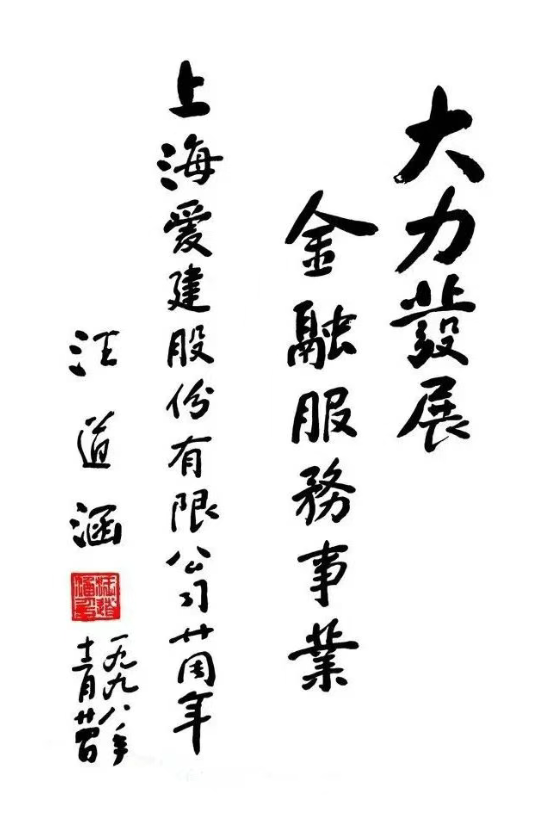 大力發展
金融服務事業
上海爱建股份有限公司廿周年
汪道涵
一九九八年
十二月廿四日